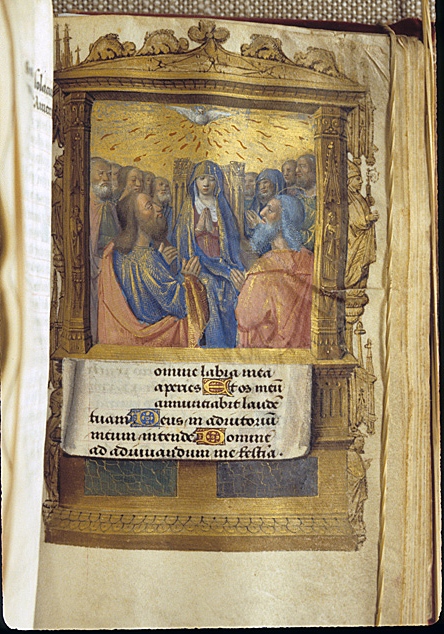 omine labia mea
aperies Et os meū
annunciabit laudē
tuam Deus, in adiutoriū
meum intende Domine
ad adiuuandum me festia.